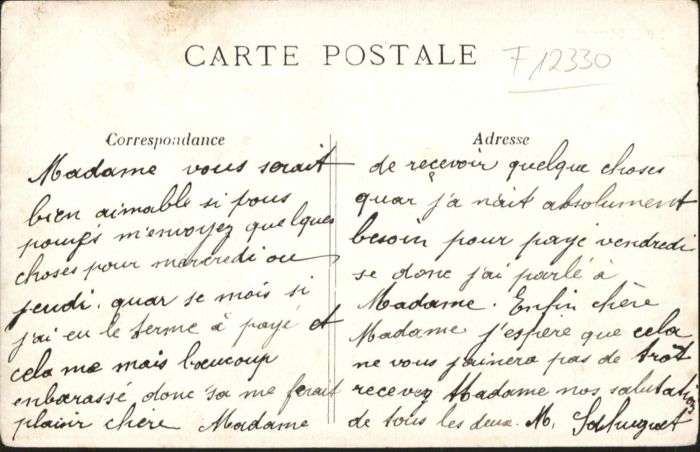 CARTE POSTALE
F 12330
Correspondance
Madame vous serait
bien aimable si vous
pouvés m'envoyez quelques
choses pour mercredi ou
jeudi. quar se mois si
j'ai eu le terme à payé et
cela me mais boeucoup
enbarassé donc sa me ferait
plaisir chère Madame
Adresse
de reçevoir quelque choses
quar j'a nait absolument
besoin pour payé vendredi
se donc j'ai parlé à
Madame. Enfin chère
Madame j'espère que cela
ne vous jainera pas de trôt
recevez Madame nos salutations
de tous les deux. M.